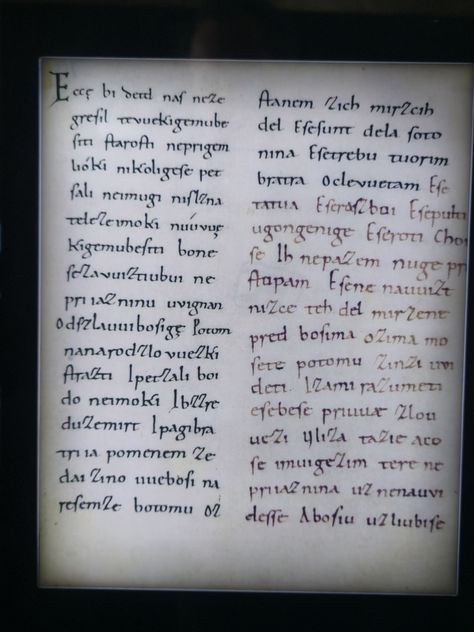 Ecce bi detd naſ neze
greſil tevuekigemube
ſiti ſtaroſti neprigem
lióki nikoligeſe pet
ſali neimugi niſlzna
teleze imoki nuúvuę
kigemubeſiti bone
ſezavuiztiubui ne
priiazninu uvignan
Odszlauuiboſigę Potom
nanarodzlovuezki
ſtrazti Ipetzali boi
do neimoki Ibzzre
duzemirt Ipagibra
triia pomenem ze
dai zino uuebosi na
resemze botomu Oz
ſtanem zich mirzcih
del Eſeſunt dela ſoto
nina Eſetrebu tuorim
bratra Oclevuetam Eſe
tatua Eſerazboi Eſepulti
ugongenige Eſeroti Choi
ſe Ih nepazem nuge pr
ſtopam Eſene nauuizt
nizce teh del mirzene
pred bosima ozima mo
sete potomu zinzi uvi
deti Izami razumeti
eſebeſe priuuæ zlou
uezi Uliza tazie aco
ſe imuigezim tere ne
priiaznina uznenauvi
deſſe Aboſiu uzliubiſe